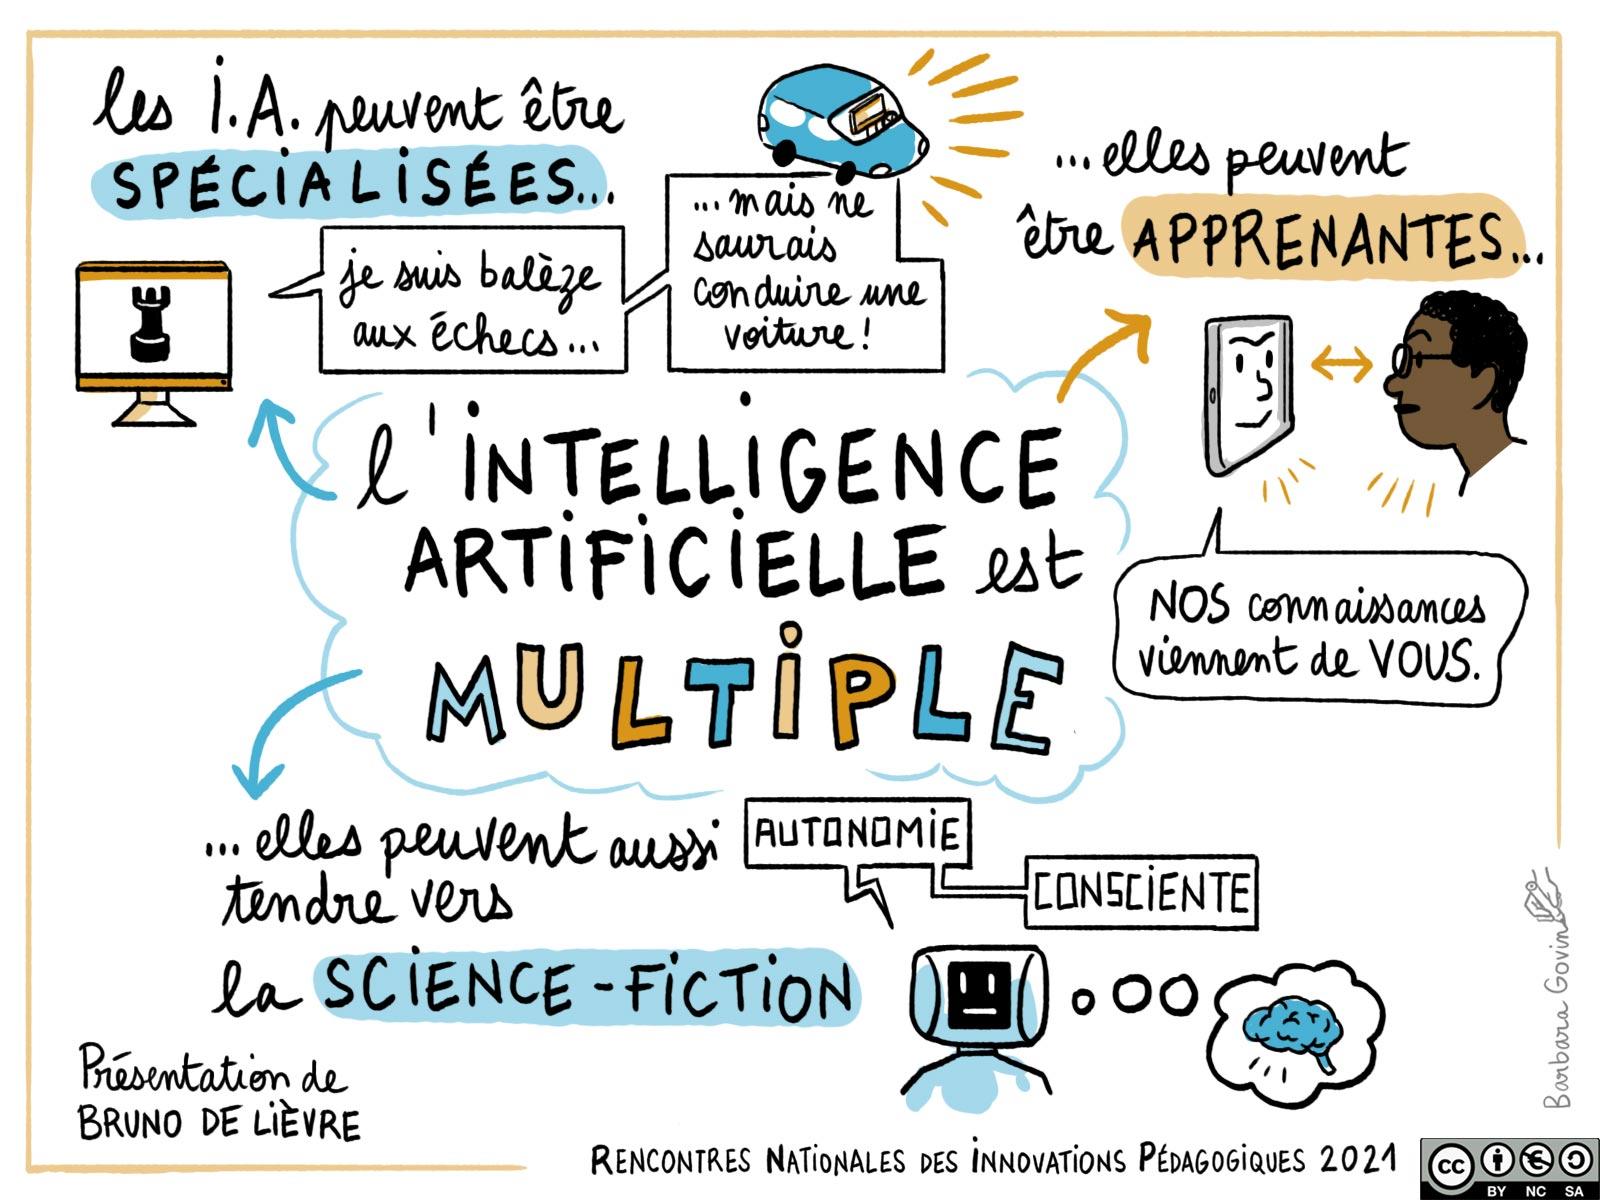 les I.A. peuvent être
SPÉCIALISÉES...
je suis balèze
aux échecs...
...mais ne
saurais
conduire une
voiture !
...elles peuvent
être APPRENANTES...
NOS connaissances
viennent de VOUS.
l'INTELLIGENCE
ARTIFICIELLE est
MULTIPLE
...elles peuvent aussi
tendre vers
la SCIENCE-FICTION
AUTONOMIE
CONSCIENTE
Présentation de
BRUNO DE LIÈVRE
Barbara Govin
RENCONTRES NATIONALES DES INNOVATIONS PÉDAGOGIQUES 2021
cc
BY NC SA